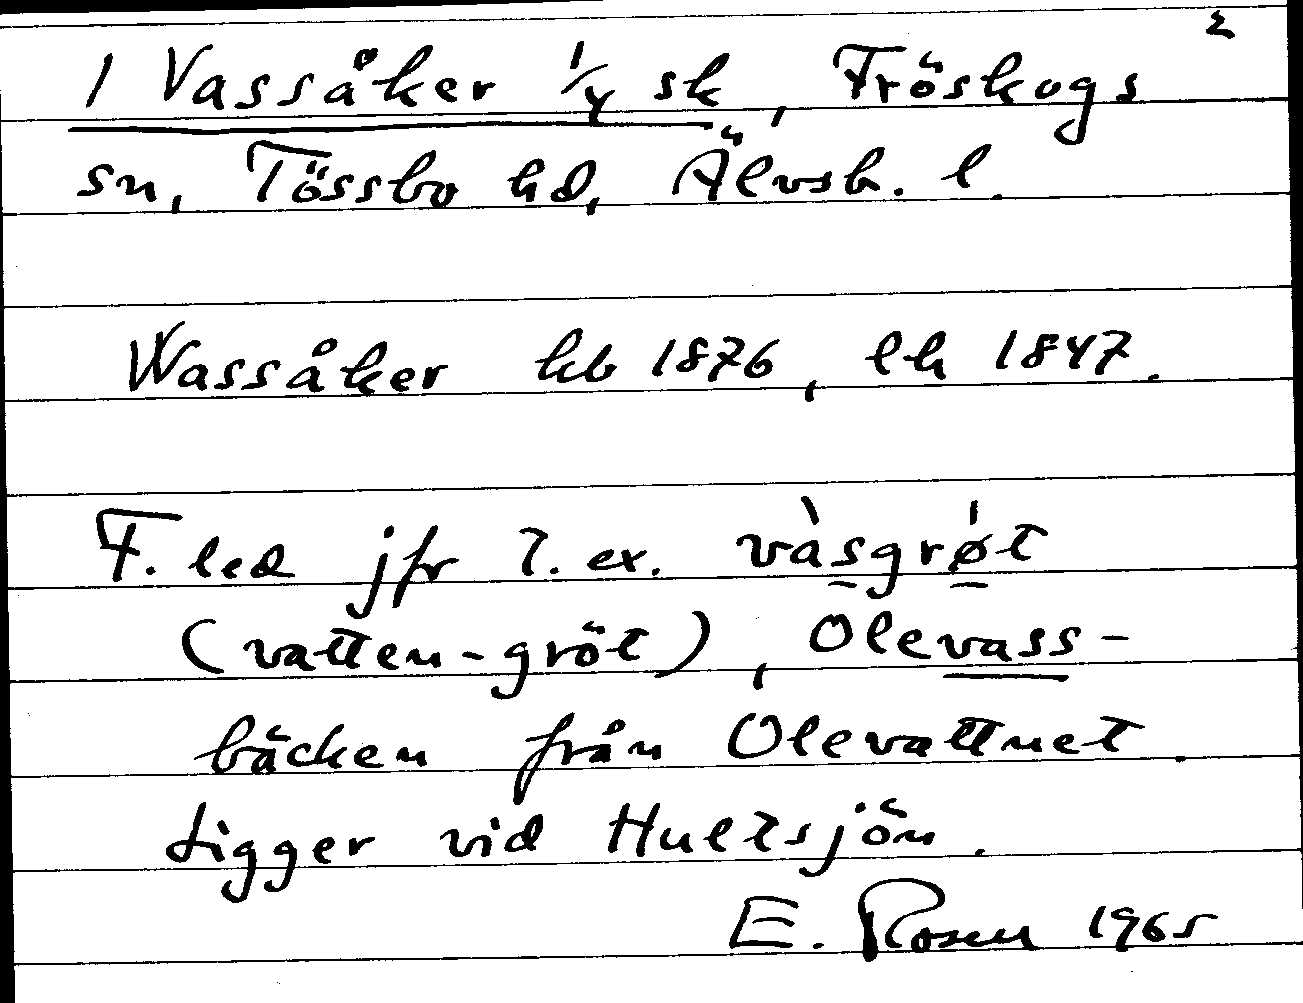 2
1 Vassåker 1/4 sk, Fröskogs
sn, Tössbo hd, Älvsb. l.
Wassåker kb 1876, lh 1847.
F. led jfr t. ex. vàsgrøt
(vatten-gröt), Olevass-
bäcken från Olevattnet.
Ligger vid Hultsjön.
E. Rosen 1965